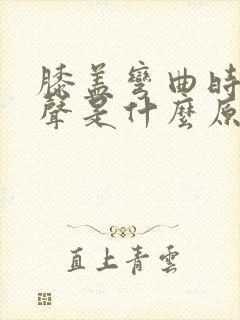 膝盖彎曲時
聲是什麼原
直上青雲